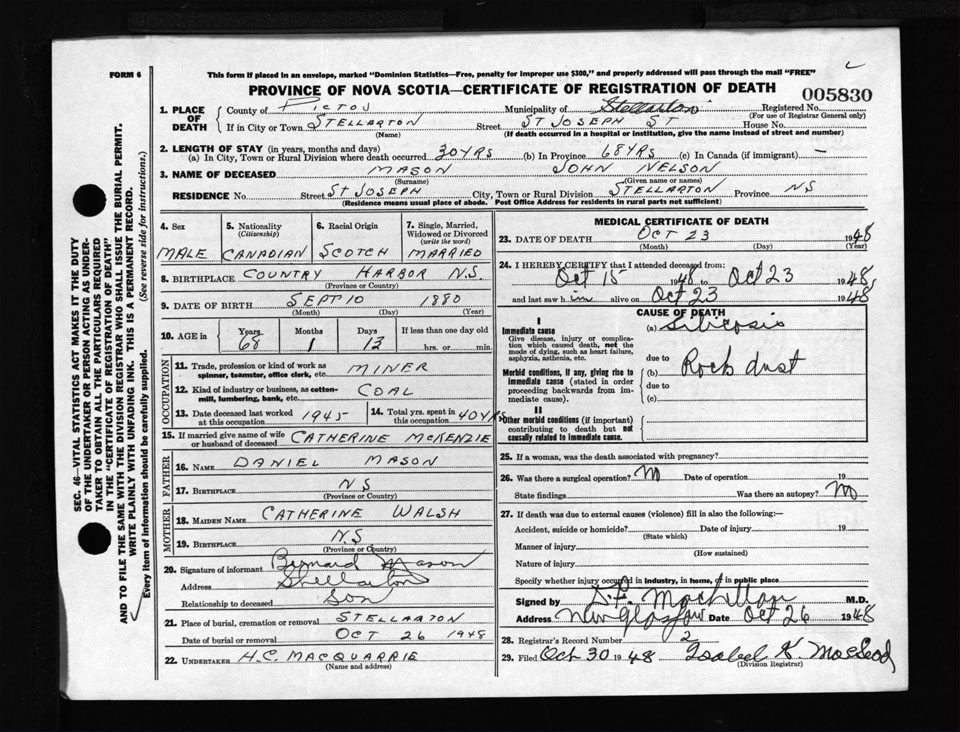 FORM 6
This form if placed in an envelope, marked "Dominion Statistics—Free, penalty for improper use $300," and properly addressed will pass through the mail "FREE"
PROVINCE OF NOVA SCOTIA—CERTIFICATE OF REGISTRATION OF DEATH
005830
1. PLACE OF DEATH { County of PICTOU Municipality of Stellarton Registered No.
(For use of Registrar General only)
If in City or Town STELLARTON Street ST JOSEPH ST House No.
(Name) (If death occurred in a hospital or institution, give the name instead of street and number)
2. LENGTH OF STAY (in years, months and days)
(a) In City, Town or Rural Division where death occurred 30 YRS (b) In Province 68 YRS (c) In Canada (if immigrant) —
3. NAME OF DECEASED MASON JOHN NELSON
(Surname) (Given name or names)
RESIDENCE No. Street ST JOSEPH City, Town or Rural Division STELLARTON Province NS
(Residence means usual place of abode. Post Office Address for residents in rural parts not sufficient)
4. Sex 5. Nationality (Citizenship) 6. Racial Origin 7. Single, Married, Widowed or Divorced (write the word)
MALE CANADIAN SCOTCH MARRIED
8. BIRTHPLACE COUNTRY HARBOR N.S.
(Province or Country)
9. DATE OF BIRTH SEPT 10 1880
(Month) (Day) (Year)
10. AGE in Years Months Days If less than one day old
68 1 13 hrs. or min.
OCCUPATION
11. Trade, profession or kind of work as spinner, teamster, office clerk, etc. MINER
12. Kind of industry or business, as cotton-mill, lumbering, bank, etc. COAL
13. Date deceased last worked at this occupation 1945 14. Total yrs. spent in this occupation 40 YRS
15. If married give name of wife or husband of deceased CATHERINE MCKENZIE
FATHER
16. NAME DANIEL MASON
17. BIRTHPLACE NS
(Province or Country)
MOTHER
18. MAIDEN NAME CATHERINE WALSH
19. BIRTHPLACE N.S
(Province or Country)
20. Signature of informant Bernard Mason
Address Stellarton
Relationship to deceased Son
21. Place of burial, cremation or removal STELLARTON
Date of burial or removal OCT 26 1948
22. UNDERTAKER H.C. MACQUARRIE
(Name and address)
MEDICAL CERTIFICATE OF DEATH
23. DATE OF DEATH OCT 23 1948
(Month) (Day) (Year)
24. I HEREBY CERTIFY that I attended deceased from:
Oct 15 1948 to Oct 23 1948
and last saw h im alive on Oct 23 1948
CAUSE OF DEATH
I
Immediate cause (a) silicosis
Give disease, injury or complication which caused death, not the mode of dying, such as heart failure, asphyxia, asthenia, etc.
due to
Morbid conditions, if any, giving rise to immediate cause (stated in order proceeding backwards from immediate cause).
(b) Rock dust
due to
(c)
II
Other morbid conditions (if important) contributing to death but not causally related to immediate cause.
25. If a woman, was the death associated with pregnancy?
26. Was there a surgical operation? No Date of operation 19
State findings Was there an autopsy? No
27. If death was due to external causes (violence) fill in also the following:—
Accident, suicide or homicide? Date of injury 19
(State which)
Manner of injury
(How sustained)
Nature of injury
Specify whether injury occurred in industry, in home, or in public place
Signed by D.F. MacLellan M.D.
Address New Glasgow Date Oct 26 1948
28. Registrar's Record Number 2
29. Filed Oct 30 1948 Isabel K. MacLeod
(Division Registrar)
SEC. 46—VITAL STATISTICS ACT MAKES IT THE DUTY
OF THE UNDERTAKER OR PERSON ACTING AS UNDER-
TAKER TO OBTAIN ALL THE PARTICULARS REQUIRED
IN THE "CERTIFICATE OF REGISTRATION OF DEATH"
AND TO FILE THE SAME WITH THE DIVISION REGISTRAR WHO SHALL ISSUE THE BURIAL PERMIT.
WRITE PLAINLY WITH UNFADING INK. THIS IS A PERMANENT RECORD.
Every item of information should be carefully supplied. (See reverse side for instructions.)